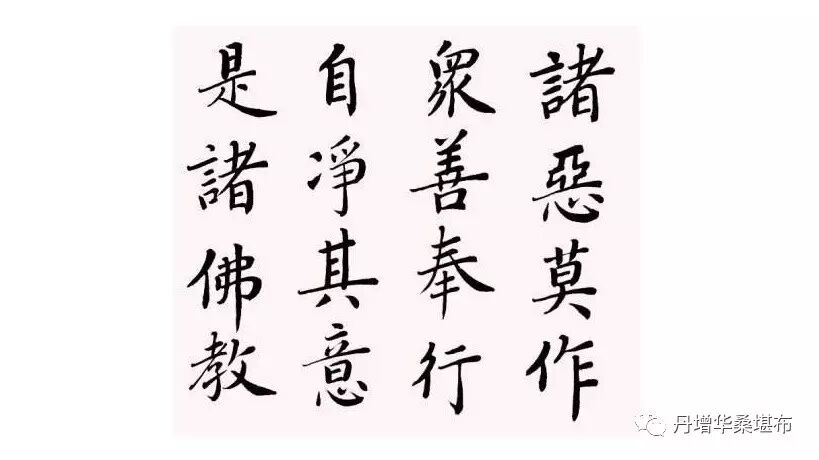 諸惡莫作
衆善奉行
自淨其意
是諸佛教
丹增华桑堪布